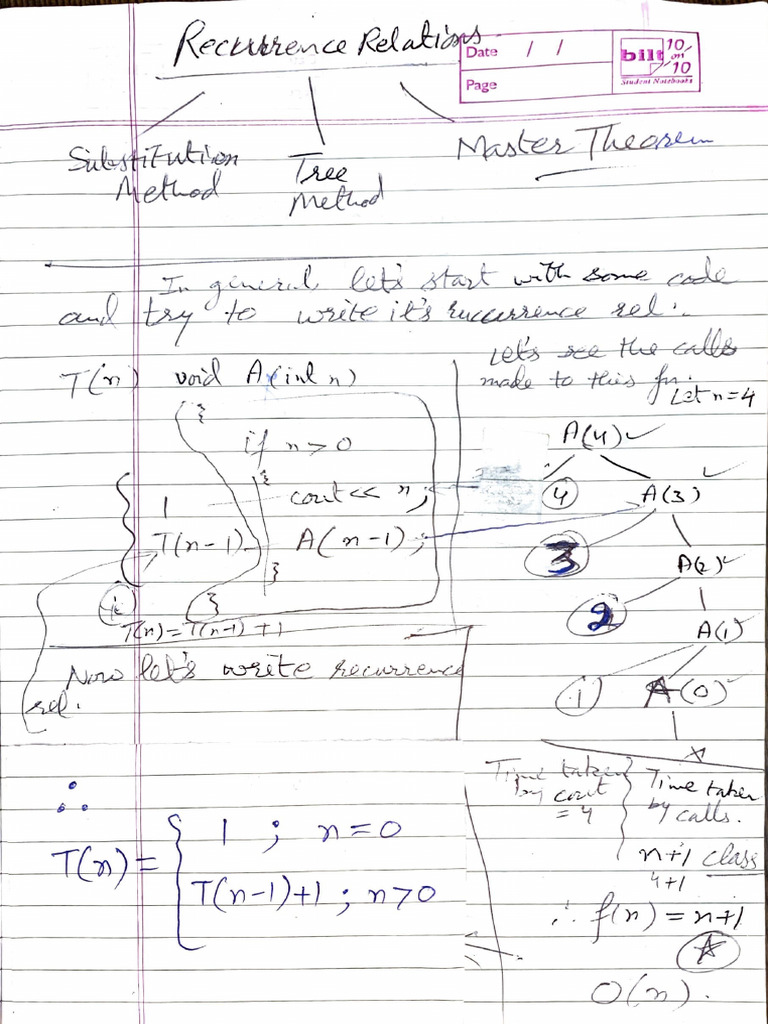 Recurrence Relations
Date / /
Page
bilt 10 on 10
Student Notebooks
Substitution Method
Tree Method
Master Theorem
In general let's start with some code
and try to write it's recurrence rel.
T(n) void A(int n)
{
if n>0
{
1 cout<< n;
T(n-1) A(n-1);
}
}
T(n)=T(n-1)+1
Now let's write recurrence
rel.
∴
T(n)= { 1 ; n=0
T(n-1)+1 ; n>0
Let's see the calls
made to this fn.
Let n=4
A(4)
4 A(3)
3 A(2)
2 A(1)
1 A(0)
×
Time taken
by cout
= 4
Time taken
by calls.
n+1 class
4+1
∴ f(n) = n+1
O(n).